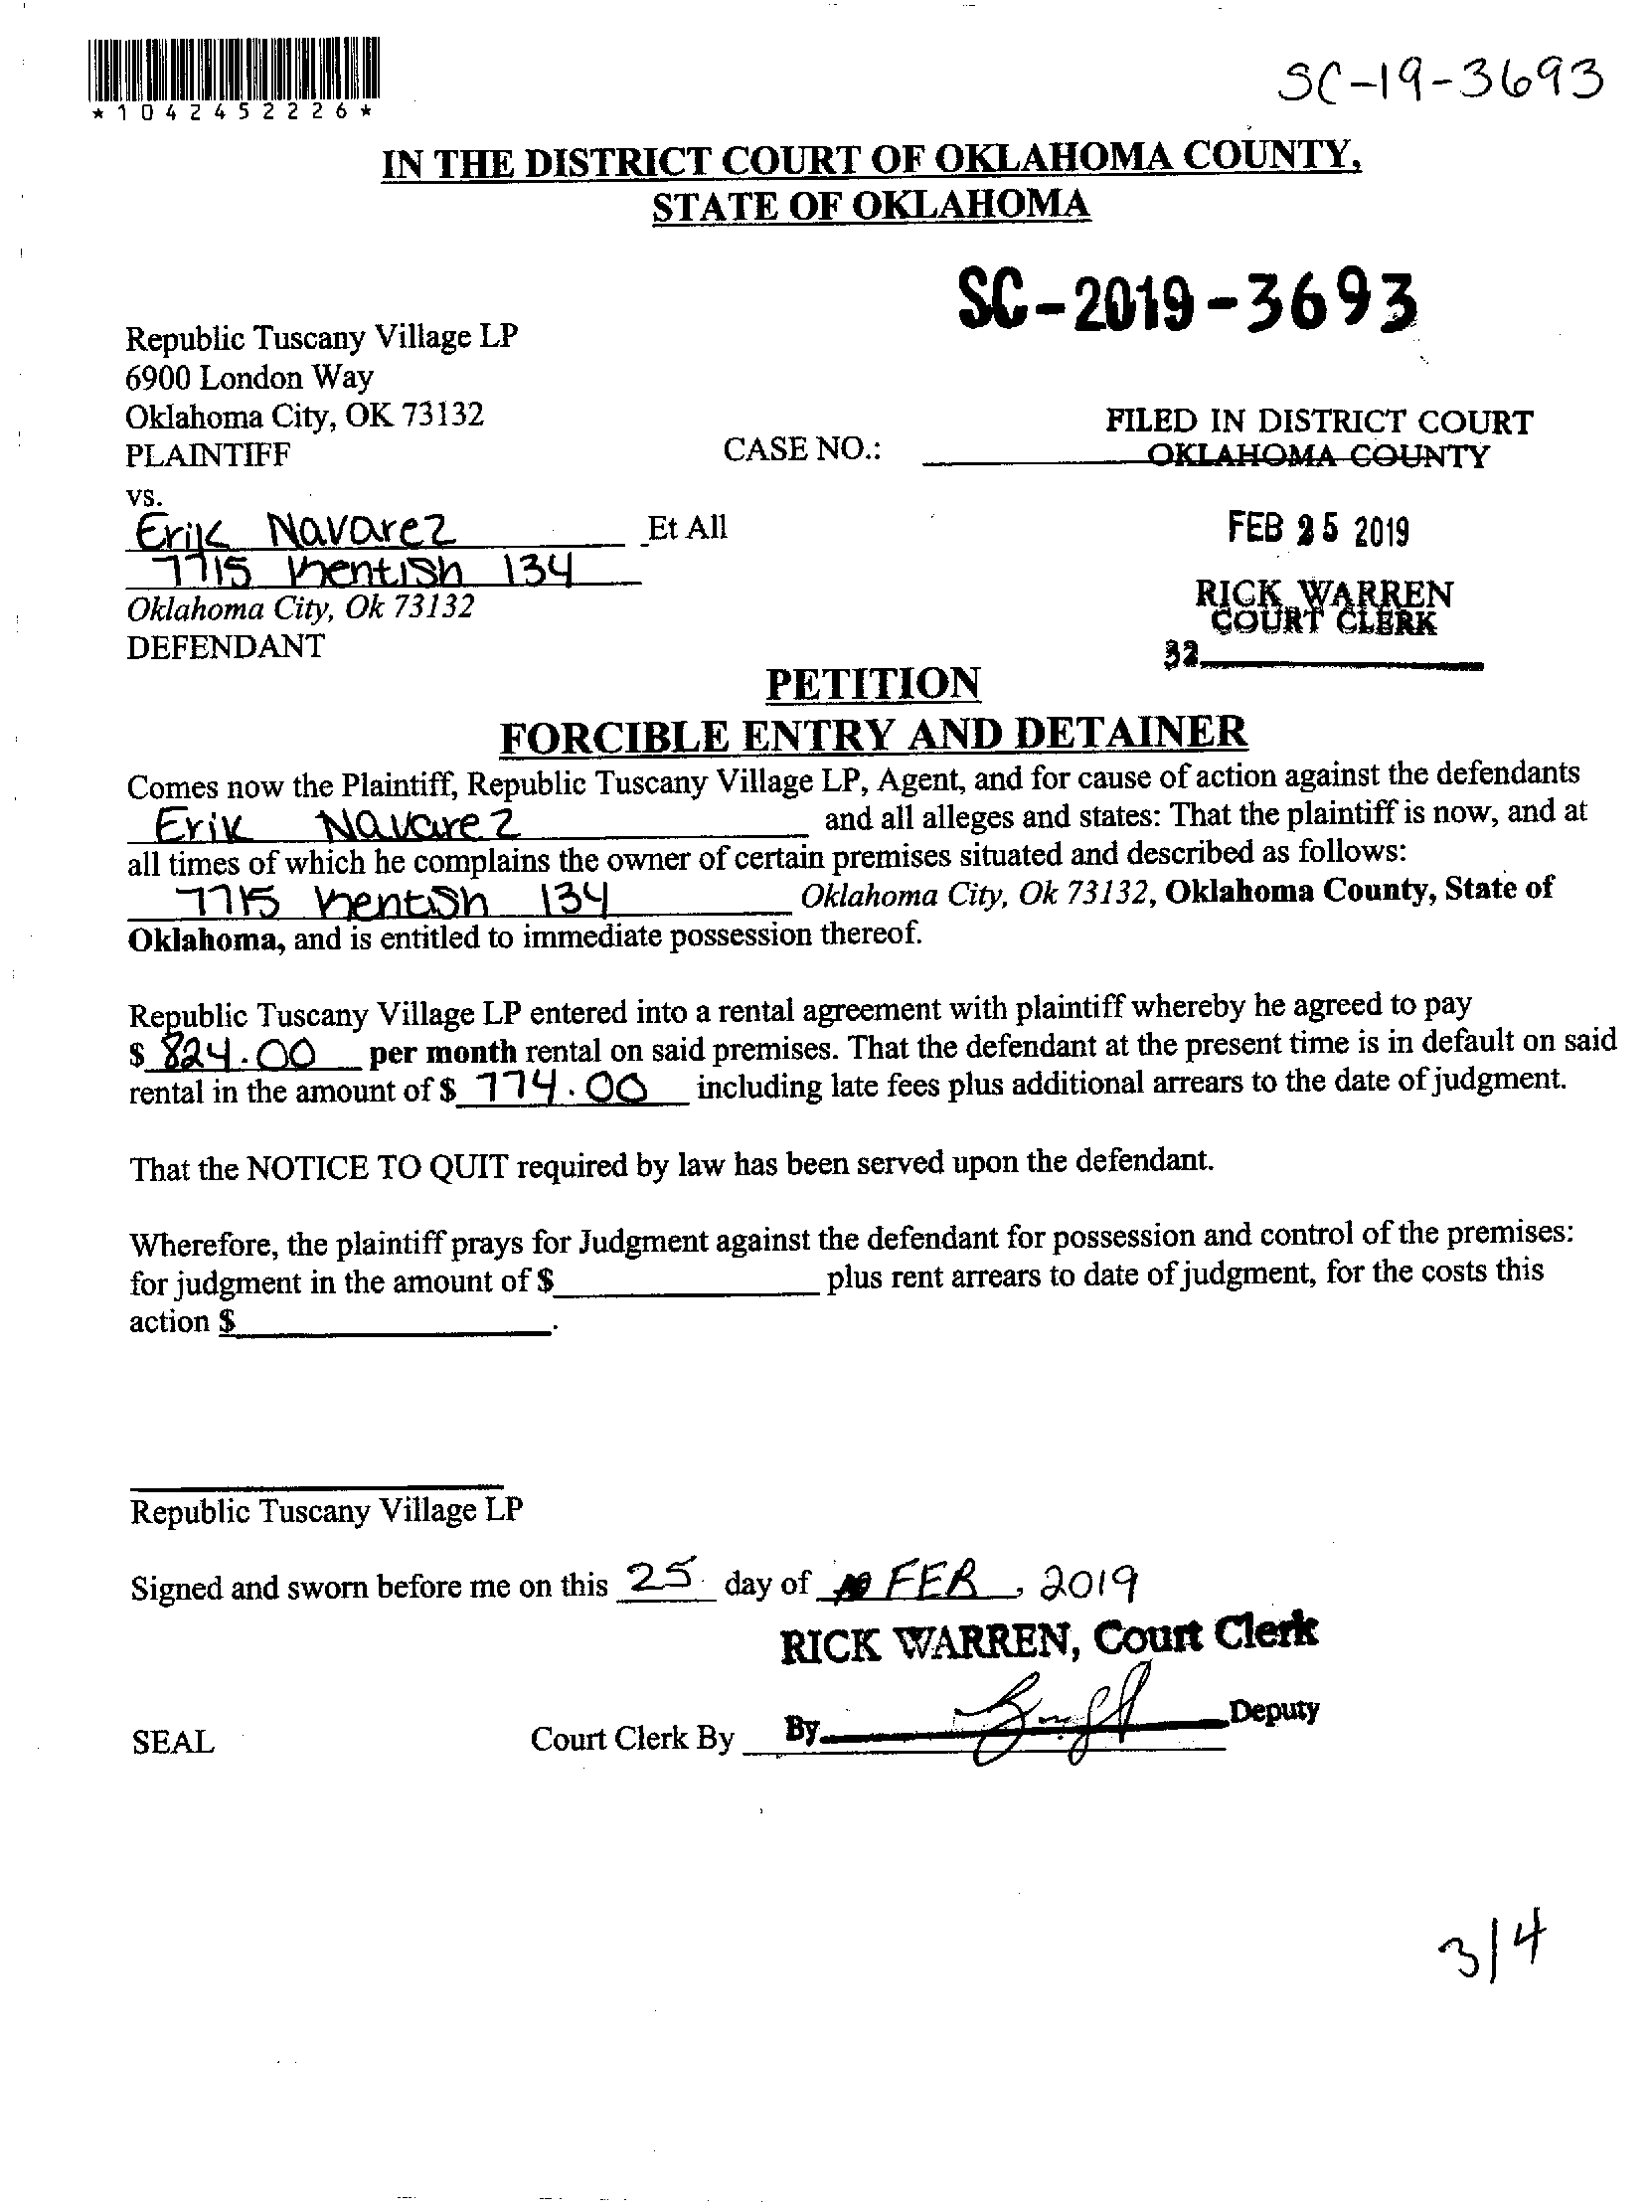 SC-19-3693
*1042452226*
IN THE DISTRICT COURT OF OKLAHOMA COUNTY,
STATE OF OKLAHOMA
SC-2019-3693
Republic Tuscany Village LP
6900 London Way
Oklahoma City, OK 73132
PLAINTIFF
CASE NO.:
FILED IN DISTRICT COURT
OKLAHOMA COUNTY
vs.
Erik Navarez Et All
7715 Kentish 134
Oklahoma City, Ok 73132
DEFENDANT
FEB 25 2019
RICK WARREN
COURT CLERK
32
PETITION
FORCIBLE ENTRY AND DETAINER
Comes now the Plaintiff, Republic Tuscany Village LP, Agent, and for cause of action against the defendants
Erik Navarez and all alleges and states: That the plaintiff is now, and at
all times of which he complains the owner of certain premises situated and described as follows:
7715 Kentish 134 Oklahoma City, Ok 73132, Oklahoma County, State of
Oklahoma, and is entitled to immediate possession thereof.
Republic Tuscany Village LP entered into a rental agreement with plaintiff whereby he agreed to pay
$ 824.00 per month rental on said premises. That the defendant at the present time is in default on said
rental in the amount of $ 774.00 including late fees plus additional arrears to the date of judgment.
That the NOTICE TO QUIT required by law has been served upon the defendant.
Wherefore, the plaintiff prays for Judgment against the defendant for possession and control of the premises:
for judgment in the amount of $ plus rent arrears to date of judgment, for the costs this
action $ .
Republic Tuscany Village LP
Signed and sworn before me on this 25 day of FEB, 2019
RICK WARREN, Court Clerk
SEAL Court Clerk By By Deputy
3/4